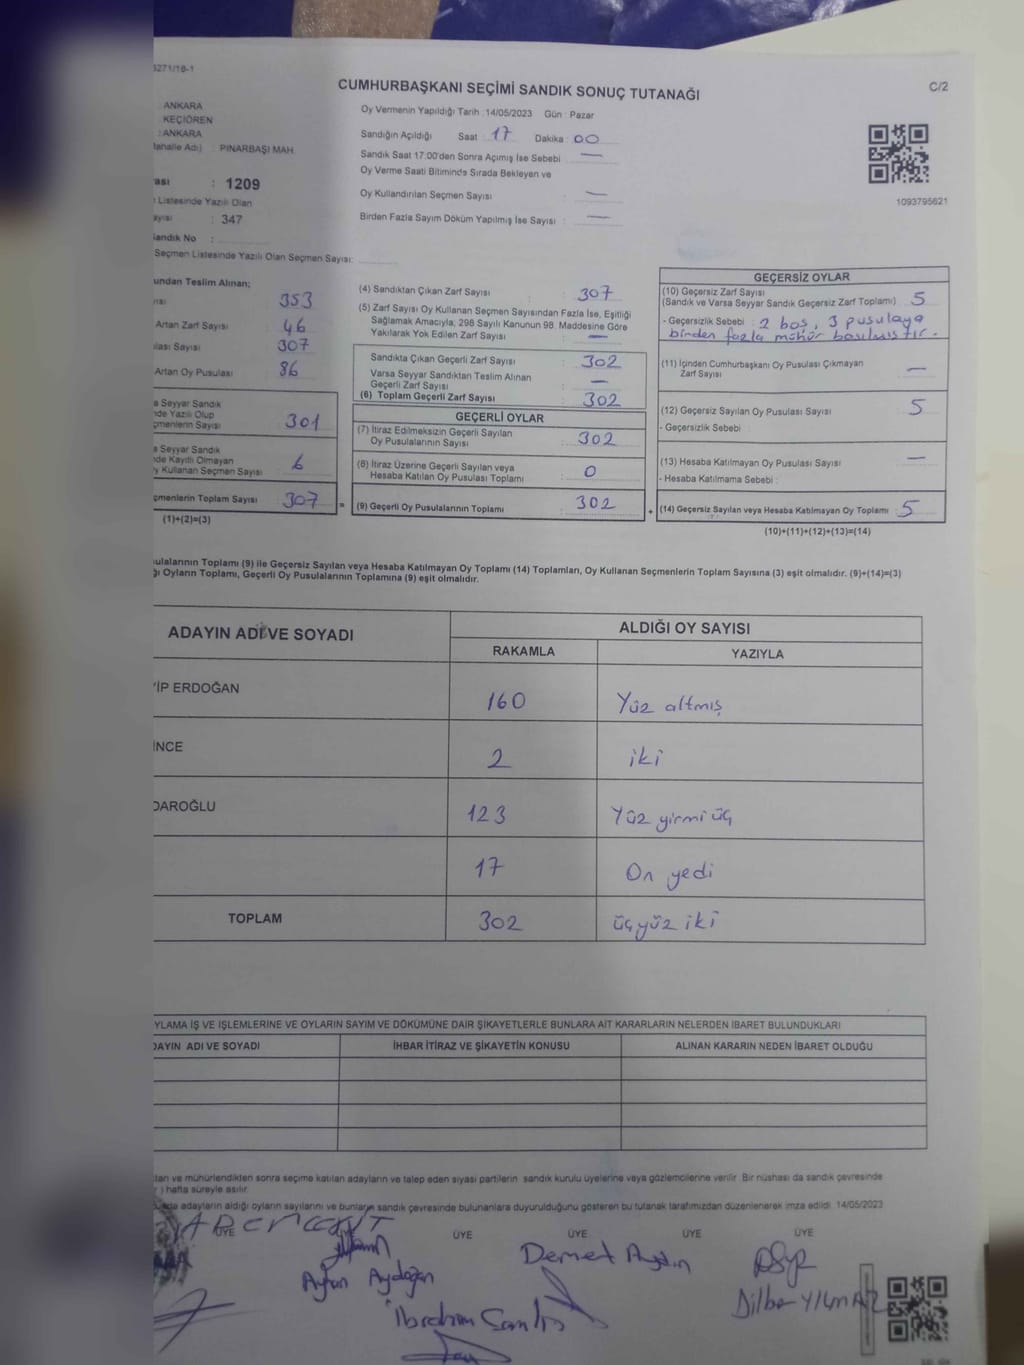 5271/18-1
CUMHURBAŞKANI SEÇİMİ SANDIK SONUÇ TUTANAĞI
C/2
: ANKARA
KEÇİÖREN
: ANKARA
Mahalle Adı) : PINARBAŞI MAH.
Oy Vermenin Yapıldığı Tarih :14/05/2023 Gün : Pazar
Sandığın Açıldığı Saat : 17 Dakika : 00
Sandık Saat 17:00'den Sonra Açımış İse Sebebi : —
Oy Verme Saati Bitiminde Sırada Bekleyen ve
Oy Kullandırılan Seçmen Sayısı : —
Birden Fazla Sayım Döküm Yapılmış İse Sayısı : —
1093795621
ası : 1209
Listesinde Yazılı Olan
ayısı : 347
Sandık No :
Seçmen Listesinde Yazılı Olan Seçmen Sayısı:
undan Teslim Alınan;
353
Artan Zarf Sayısı 46
ılası Sayısı 307
Artan Oy Pusulası 86
a Seyyar Sandık
nde Yazılı Olup
çmenlerin Sayısı 301
a Seyyar Sandık
nde Kayıtlı Olmayan
y Kullanan Seçmen Sayısı 6
çmenlerin Toplam Sayısı 307 =
(1)+(2)=(3)
(4) Sandıktan Çıkan Zarf Sayısı : 307
(5) Zarf Sayısı Oy Kullanan Seçmen Sayısından Fazla İse, Eşitliği
Sağlamak Amacıyla, 298 Sayılı Kanunun 98. Maddesine Göre
Yakılarak Yok Edilen Zarf Sayısı : —
Sandıkta Çıkan Geçerli Zarf Sayısı : 302
Varsa Seyyar Sandıktan Teslim Alınan
Geçerli Zarf Sayısı : —
(6) Toplam Geçerli Zarf Sayısı : 302
GEÇERLİ OYLAR
(7) İtiraz Edilmeksizin Geçerli Sayılan
Oy Pusulalarının Sayısı : 302
(8) İtiraz Üzerine Geçerli Sayılan veya
Hesaba Katılan Oy Pusulası Toplamı : 0
(9) Geçerli Oy Pusulalarının Toplamı : 302 +
GEÇERSİZ OYLAR
(10) Geçersiz Zarf Sayısı
(Sandık ve Varsa Seyyar Sandık Geçersiz Zarf Toplamı) : 5
- Geçersizlik Sebebi : 2 boş, 3 pusulaya
birden fazla mühür basılmıştır.
(11) İçinden Cumhurbaşkanı Oy Pusulası Çıkmayan
Zarf Sayısı : —
(12) Geçersiz Sayılan Oy Pusulası Sayısı : 5
- Geçersizlik Sebebi :
(13) Hesaba Katılmayan Oy Pusulası Sayısı : —
- Hesaba Katılmama Sebebi :
(14) Geçersiz Sayılan veya Hesaba Katılmayan Oy Toplamı : 5
(10)+(11)+(12)+(13)=(14)
usulalarının Toplamı (9) ile Geçersiz Sayılan veya Hesaba Katılmayan Oy Toplamı (14) Toplamları, Oy Kullanan Seçmenlerin Toplam Sayısına (3) eşit olmalıdır. (9)+(14)=(3)
ğı Oyların Toplamı, Geçerli Oy Pusulalarının Toplamına (9) eşit olmalıdır.
ADAYIN ADI VE SOYADI
ALDIĞI OY SAYISI
RAKAMLA
YAZIYLA
YİP ERDOĞAN 160 Yüz altmış
İNCE 2 iki
DAROĞLU 123 Yüz yirmi üç
17 On yedi
TOPLAM 302 üçyüz iki
YLAMA İŞ VE İŞLEMLERİNE VE OYLARIN SAYIM VE DÖKÜMÜNE DAİR ŞİKAYETLERLE BUNLARA AİT KARARLARIN NELERDEN İBARET BULUNDUKLARI
DAYIN ADI VE SOYADI
İHBAR İTİRAZ VE ŞİKAYETİN KONUSU
ALINAN KARARIN NEDEN İBARET OLDUĞU
ları ve mühürlendikten sonra seçime katılan adayların ve talep eden siyasi partilerin sandık kurulu üyelerine veya gözlemcilerine verilir. Bir nüshası da sandık çevresinde
) hafta süreyle asılır.
adayların aldığı oyların sayılarını ve bunların sandık çevresinde bulunanlara duyurulduğunu gösteren bu tutanak tarafımızdan düzenlenerek imza edildi. 14/05/2023
ÜYE ÜYE ÜYE ÜYE ÜYE
Ayhan Aydoğan
Demet Aydın
İbrahim
Dilber YILMAZ